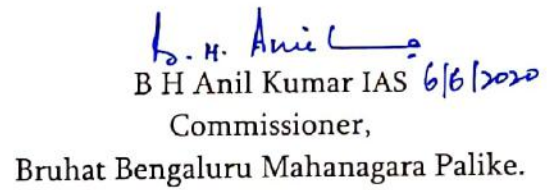 B. H. Anil
B H Anil Kumar IAS 6/6/2020
Commissioner,
Bruhat Bengaluru Mahanagara Palike.